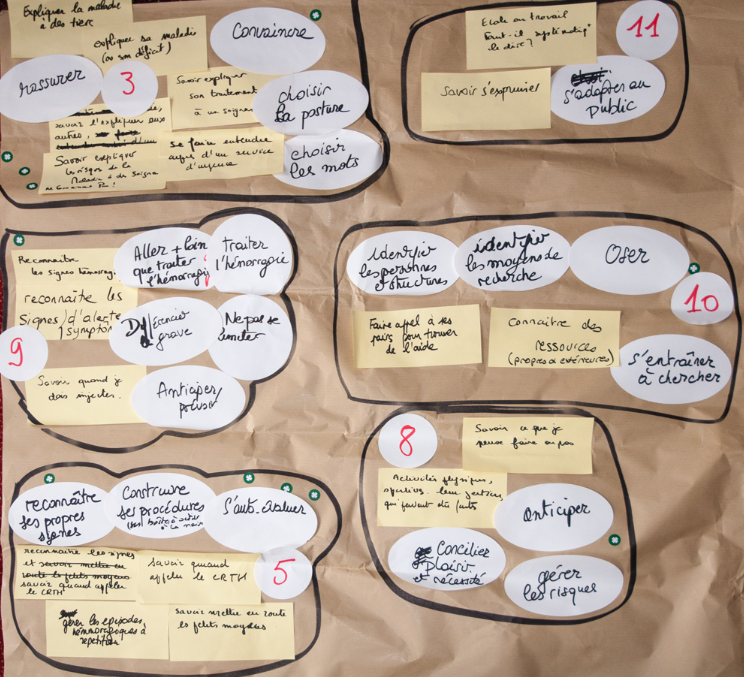 Expliquer la maladie
à des tiers
expliquer sa maladie
(ou son déficit)
Convaincre
rassurer
3
Savoir expliquer
son traitement
à un soignant
choisir
la posture
savoir l'expliquer aux
autres,
Savoir expliquer
les risques de la
Maladie à un Soigna
se faire entendre
auprès d'un service
d'urgence
choisir
les mots
Ecole ou travail
Faut-il systématiq^t
le dire ?
11
Savoir s'exprimer
s'adapter au
public
Reconnaitre
les signes hémorrag
Aller + loin
que traiter
l'hémorragie
traiter
l'hémorragie
reconnaître les
Signes / d'alerte
symptom
Différencier
grave
Ne pas se
limiter
9
Savoir quand je
dois injecter.
Anticiper/
prévoir
identifier
les personnes
et structures
identifier
les moyens de
recherche
Oser
10
Faire appel à ses
pairs pour trouver
de l'aide
Connaître des
ressources
(propres & extérieures)
s'entraîner
à chercher
8
Savoir ce que je
peux faire ou pas
Activités physiques,
sportives
anticiper
Concilier
Plaisir
et nécessité
gérer
les risques
reconnaître
ses propres
signes
Construire
ses procédures
S'auto-évaluer
reconnaitre les signes
et savoir mettre en
route les petits moyens
savoir quand appeler
le CRTH
savoir quand
appeler le CRTH
5
gérer les épisodes
hémorragiques à
répétition
savoir mettre en route
les petits moyens